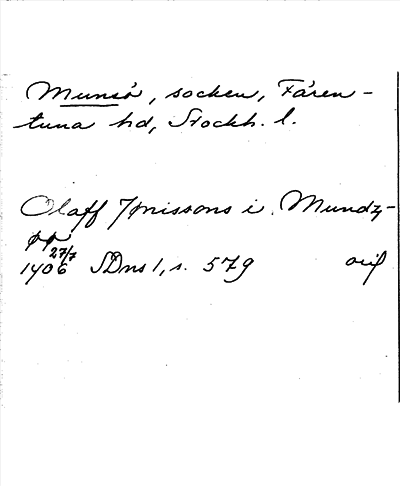 Munsö, socken, Fären-
tuna hd, Stockh. l.
Olaff Jönissons i Mundz-
öö
27/7
1406 SDns 1, s. 579 orig